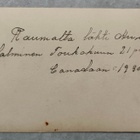 Raumalta lähti Anna
Salminen Toukokuun 21 p
Canadaan: 19